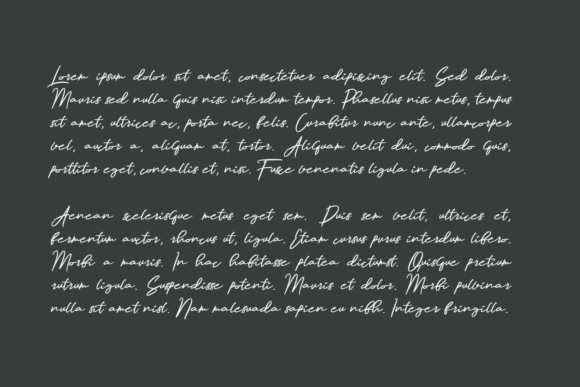 Lorem ipsum dolor sit amet, consectetuer adipiscing elit. Sed dolor.
Mauris sed nulla quis nisi interdum tempor. Phasellus nisi metus, tempus
sit amet, ultrices ac, porta nec, felis. Curabitur nunc ante, ullamcorper
vel, auctor a, aliquam at, tortor. Aliquam velit dui, commodo quis,
porttitor eget, convallis et, nisi. Fusce venenatis ligula in pede.
Aenean scelerisque metus eget sem. Duis sem velit, ultrices et,
fermentum auctor, rhoncus ut, ligula. Etiam cursus purus interdum libero.
Morbi a mauris. In hac habitasse platea dictumst. Quisque pretium
rutrum ligula. Suspendisse potenti. Mauris et dolor. Morbi pulvinar
nulla sit amet nisl. Nam malesuada sapien eu nibh. Integer fringilla.